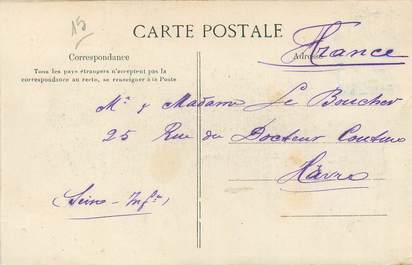 15
CARTE POSTALE
France
Correspondance
Adresse
Tous les pays étrangers n'acceptent pas la
correspondance au recto, se renseigner à la Poste
Mr & Madame Le Boucher
25 Rue du Docteur
Havre
(Seine-Infre)